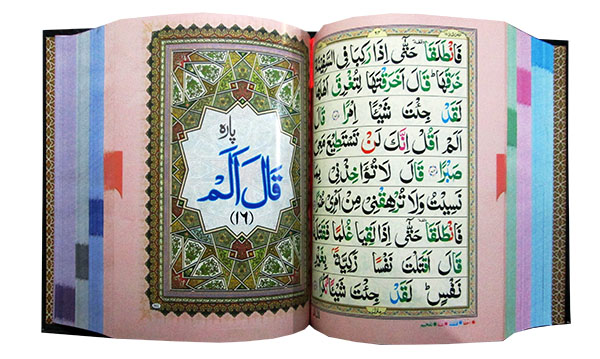 فَانْطَلَقَا حَتّٰۤی اِذَا رَکِبَا فِی السَّفِیْنَةِ
خَرَقَهَا ؕ قَالَ اَخَرَقْتَهَا لِتُغْرِقَ اَهْلَهَا
لَقَدْ جِئْتَ شَیْـًٔا اِمْرًا قَالَ
اَلَمْ اَقُلْ اِنَّکَ لَنْ تَسْتَطِیْعَ مَعِیَ
صَبْرًا قَالَ لَا تُؤَاخِذْنِیْ
نَسِیْتُ وَلَا تُرْهِقْنِیْ مِنْ اَمْرِیْ
فَانْطَلَقَا حَتّٰۤی اِذَا لَقِیَا غُلٰمًا فَقَتَلَهٗ
قَالَ اَقَتَلْتَ نَفْسًا زَکِیَّةًۢ بِغَیْرِ
نَفْسٍ ؕ لَقَدْ جِئْتَ شَیْـًٔا
پارہ
قَالَ اَلَمْ
(۱۶)